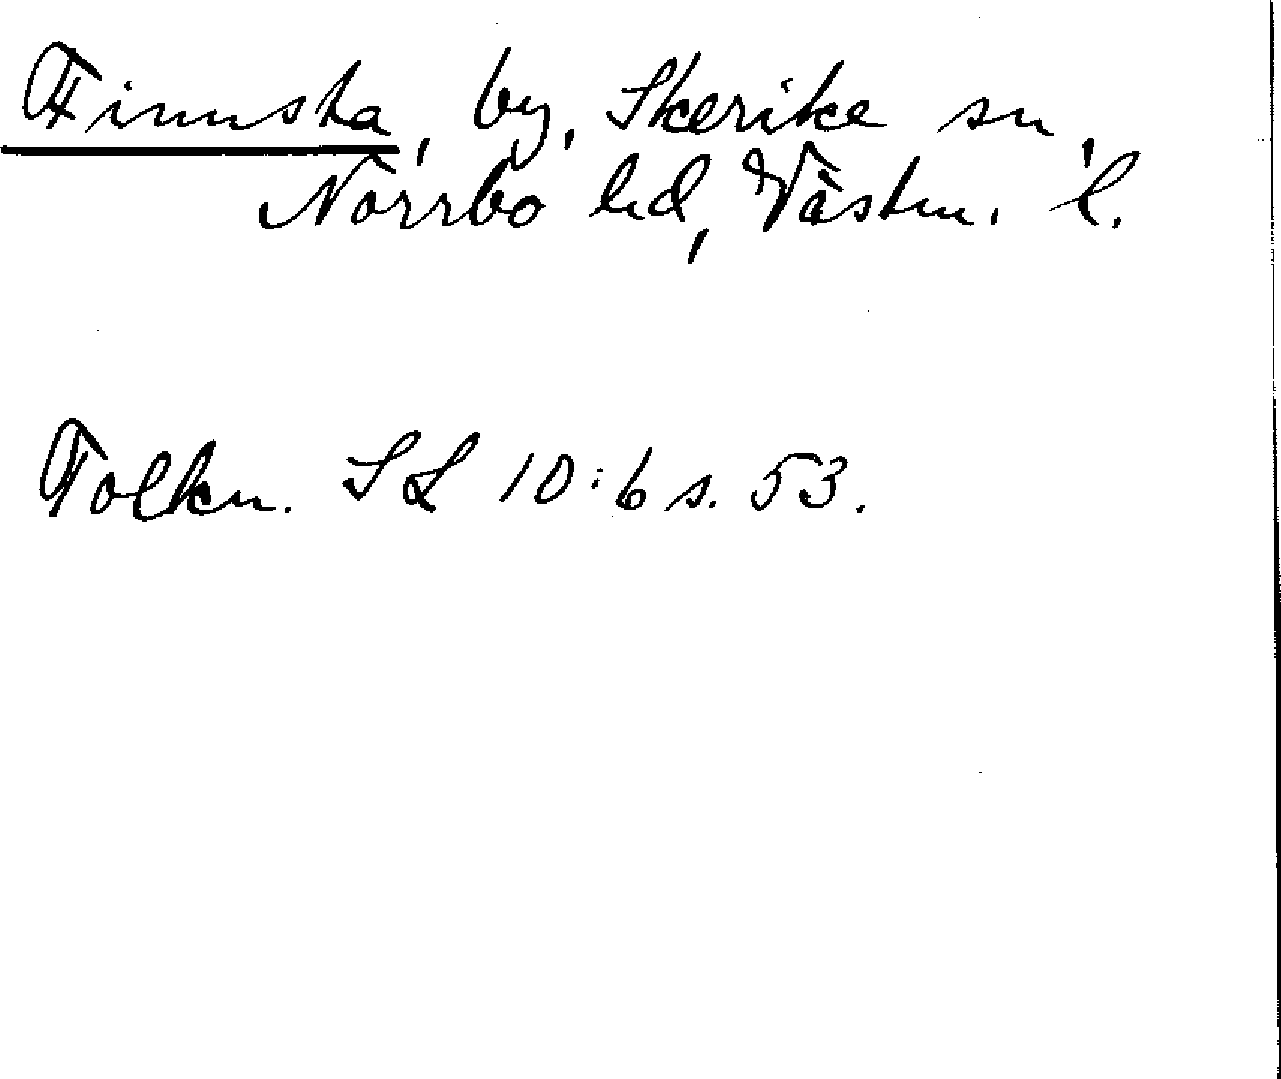 Finnsta, by, Skerike sn,
Norrbo hd, Västm. l.
Folkn. SL 10:6 s. 53.